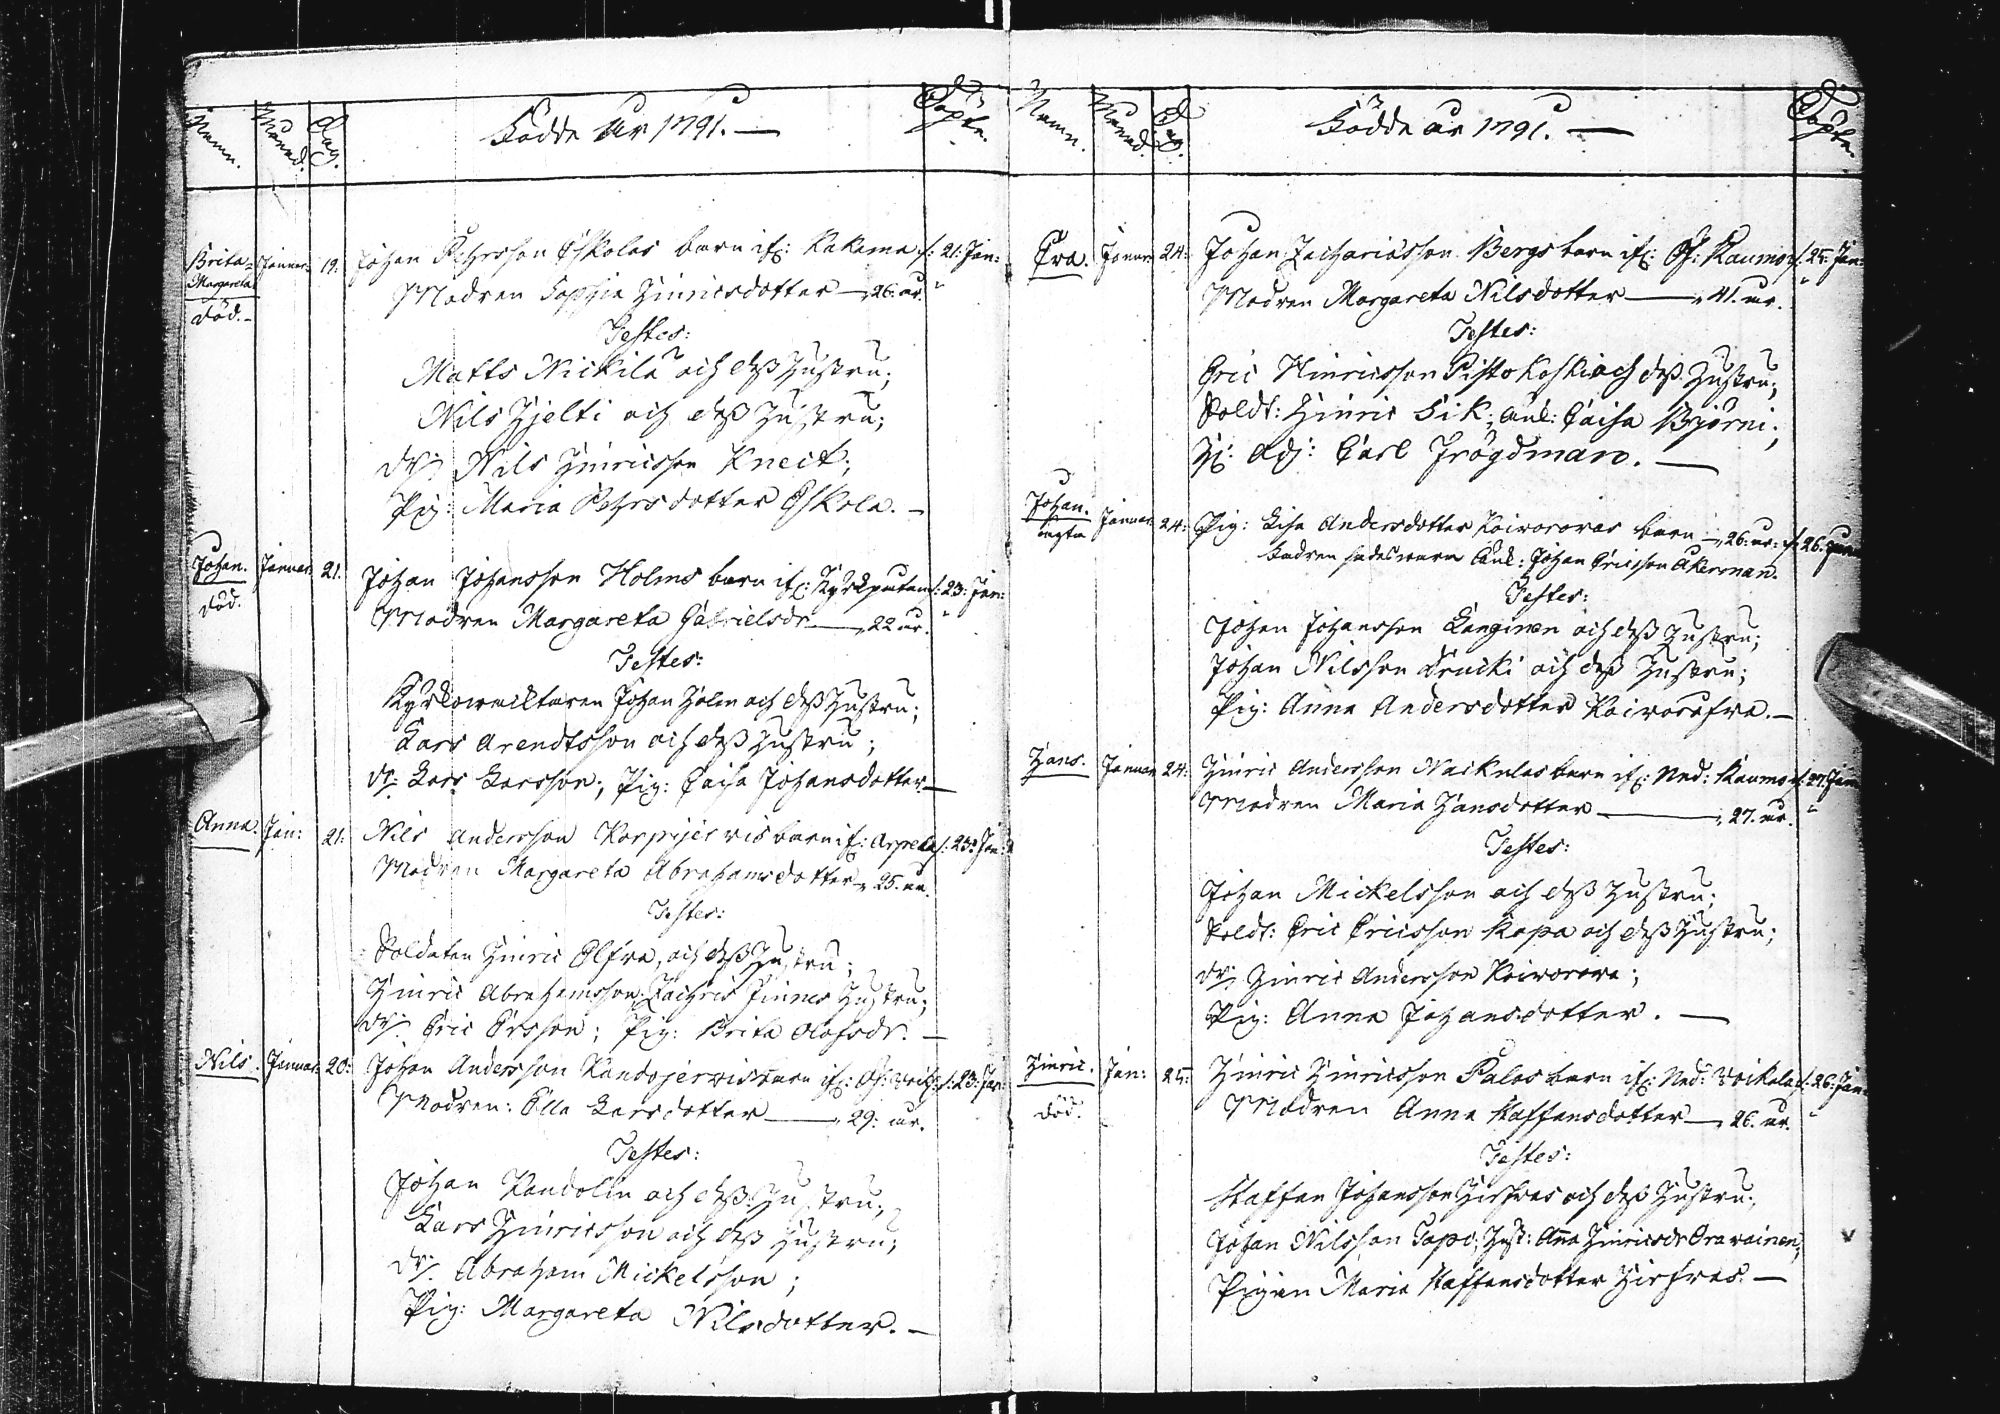 Namn. Månad. Dag. Födde År 1791. — Döpte.
Brita Margareta död. Januar: 19. Johan Pehrsson Eskolas barn if: Kakama d: 21. Jan:
Modren Sophia Hinricsdotter — 26. år.
Testes:
Matts Nickilä och dess Hustru;
Nils Hjelti och dess Hustru;
Dr: Nils Hinricsson Kneck;
Pig: Maria Pehrsdotter Eskola. —
Johan. död. Januar: 21. Johan Johansson Holms barn if: Kyrkputas d: 23. Jan:
Modren Margareta Gabrielsdr — 22 år.
Testes:
Kyrkowäcktaren Johan Holm och dess Hustru;
Lars Arendtsson och dess Hustru;
Dr: Lars Larsson; Pig: Caisa Johansdotter —
Anna. Jan: 21. Nils Andersson Korpijerwis barn if: Arpela d: 23. Jan:
Modren Margareta Abrahamsdotter 25. år.
Testes:
Soldaten Hinric Elfra, och dess Hustru;
Hinric Abrahamsson Zachris Finnes Hustru;
Dr: Eric Ersson; Pig: Brita Olofsdr. —
Nils. Januar: 20. Johan Andersson Kandojerwis barn if: Öf: Woik: d: 23. Jan:
Modren: Ella Larsdotter — 29. år.
Testes:
Johan Kandolin och dess Hustru;
Lars Hinricsson och dess Hustru;
Dr: Abraham Mickelsson;
Pig: Margareta Nilsdotter. —
Namn. Månad. Dag. Födde år 1791. — Döpte.
Eva. Januar: 24. Johan Zachariasson Bergs barn if: Öf: Raumo d: 25. Jan:
Modren Margareta Nilsdotter — 41. år.
Testes:
Eric Hinricsson Pistokoski och dess Hustru;
Sold: Hinric Sik; Enk: Caisa Björni;
H: Adj: Carl Frögdman. —
Johan. oägta Januar: 24. Pig: Lisa Andersdotter Koiworovas barn — 26. år. d: 26. Jan:
Fadren sades wara Enk: Johan Ericsson Åkerman.
Testes:
Johan Johansson Langinen och dess Hustru;
Johan Nilsson Krucki och dess Hustru;
Pig: Anna Andersdotter —
Hans. Januar: 24. Hinric Andersson Nackulas barn if: Ned: Raumo d: 27. Jan:
Modren Maria Hansdotter — 27. år.
Testes:
Johan Mickelsson och dess Hustru;
Sold: Eric Ericsson Kopa och dess Hustru;
Dr: Hinric Andersson Koiworova;
Pig: Anna Johansdotter. —
Hinric. död. Jan: 25. Hinric Hinricsson Palos barn if: Ned: Woikala d: 26. Jan:
Modren Anna Staffansdotter — 26. år.
Testes:
Staffan Johansson Hirfvas och dess Hustru;
Johan Nilsson Tapo; Hust: Anna Hinricsdr Orawainen;
Pigan Maria Staffansdotter Hirfvas. —